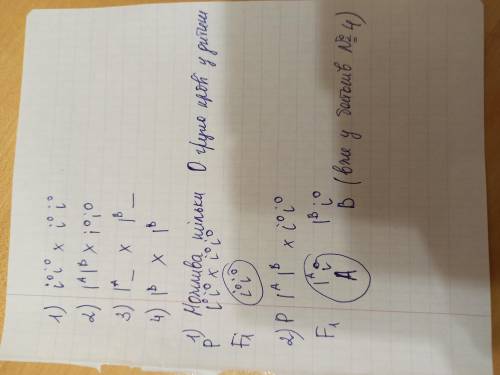 1) i⁰i⁰ x i⁰i⁰
2) IᴬIᴮ x i⁰i⁰
3) Iᴬ_ x Iᴮ_
4) Iᴮ x Iᴮ
1) Можлива тільки O група крові у дитини
P i⁰i⁰ x i⁰i⁰
F₁ i⁰i⁰
2) P IᴬIᴮ x i⁰i⁰
F₁ Iᴬi⁰ Iᴮi⁰
A B (вже у батьків №4)